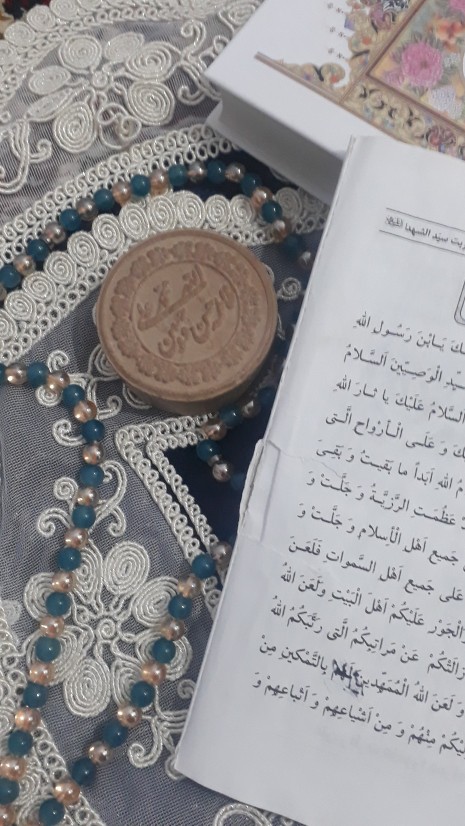 سيّد الشهدا
يَابْنَ رَسُولِ اللهِ
الْوَصِيّينَ اَلسَّلامُ
السَّلامُ عَلَيْكَ يا ثارَ اللهِ
وَ عَلَى الْاَرْواحِ الَّتى
اللهِ اَبَداً ما بَقيتُ وَ بَقِىَ
عَظُمَتِ الرَّزِيَّةُ وَ جَلَّتْ وَ
جَميعِ اَهْلِ الْاِسلامِ وَ جَلَّتْ وَ
عَلى جَميعِ اَهْلِ السَّمواتِ فَلَعَنَ
الْجَوْرِ عَلَيْكُمْ اَهْلَ الْبَيْتِ وَلَعَنَ اللهُ
عَنْ مَراتِبِكُمُ الَّتى رَتَّبَكُمُ اللهُ
وَ لَعَنَ اللهُ الْمُمَهِّدينَ لَهُمْ بِالتَّمْكينِ مِنْ
مِنْهُمْ وَ مِنْ اَشْياعِهِمْ وَ اَتْباعِهِمْ وَ